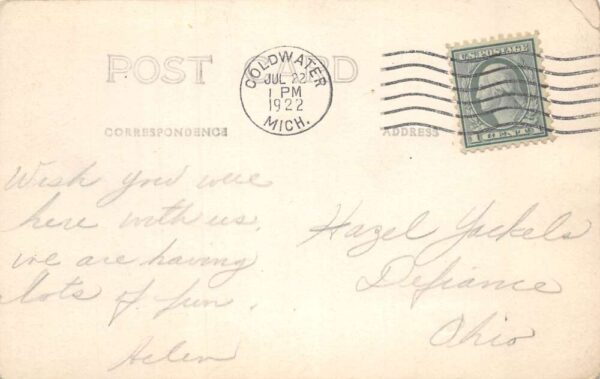 POST CARD
COLDWATER
JUL 22
1 PM
1922
MICH.
U.S. POSTAGE
1 CENT 1
CORRESPONDENCE
ADDRESS
Wish you were
here with us,
we are having
lots of fun.
Helen
Hazel Yackels
Defiance
Ohio